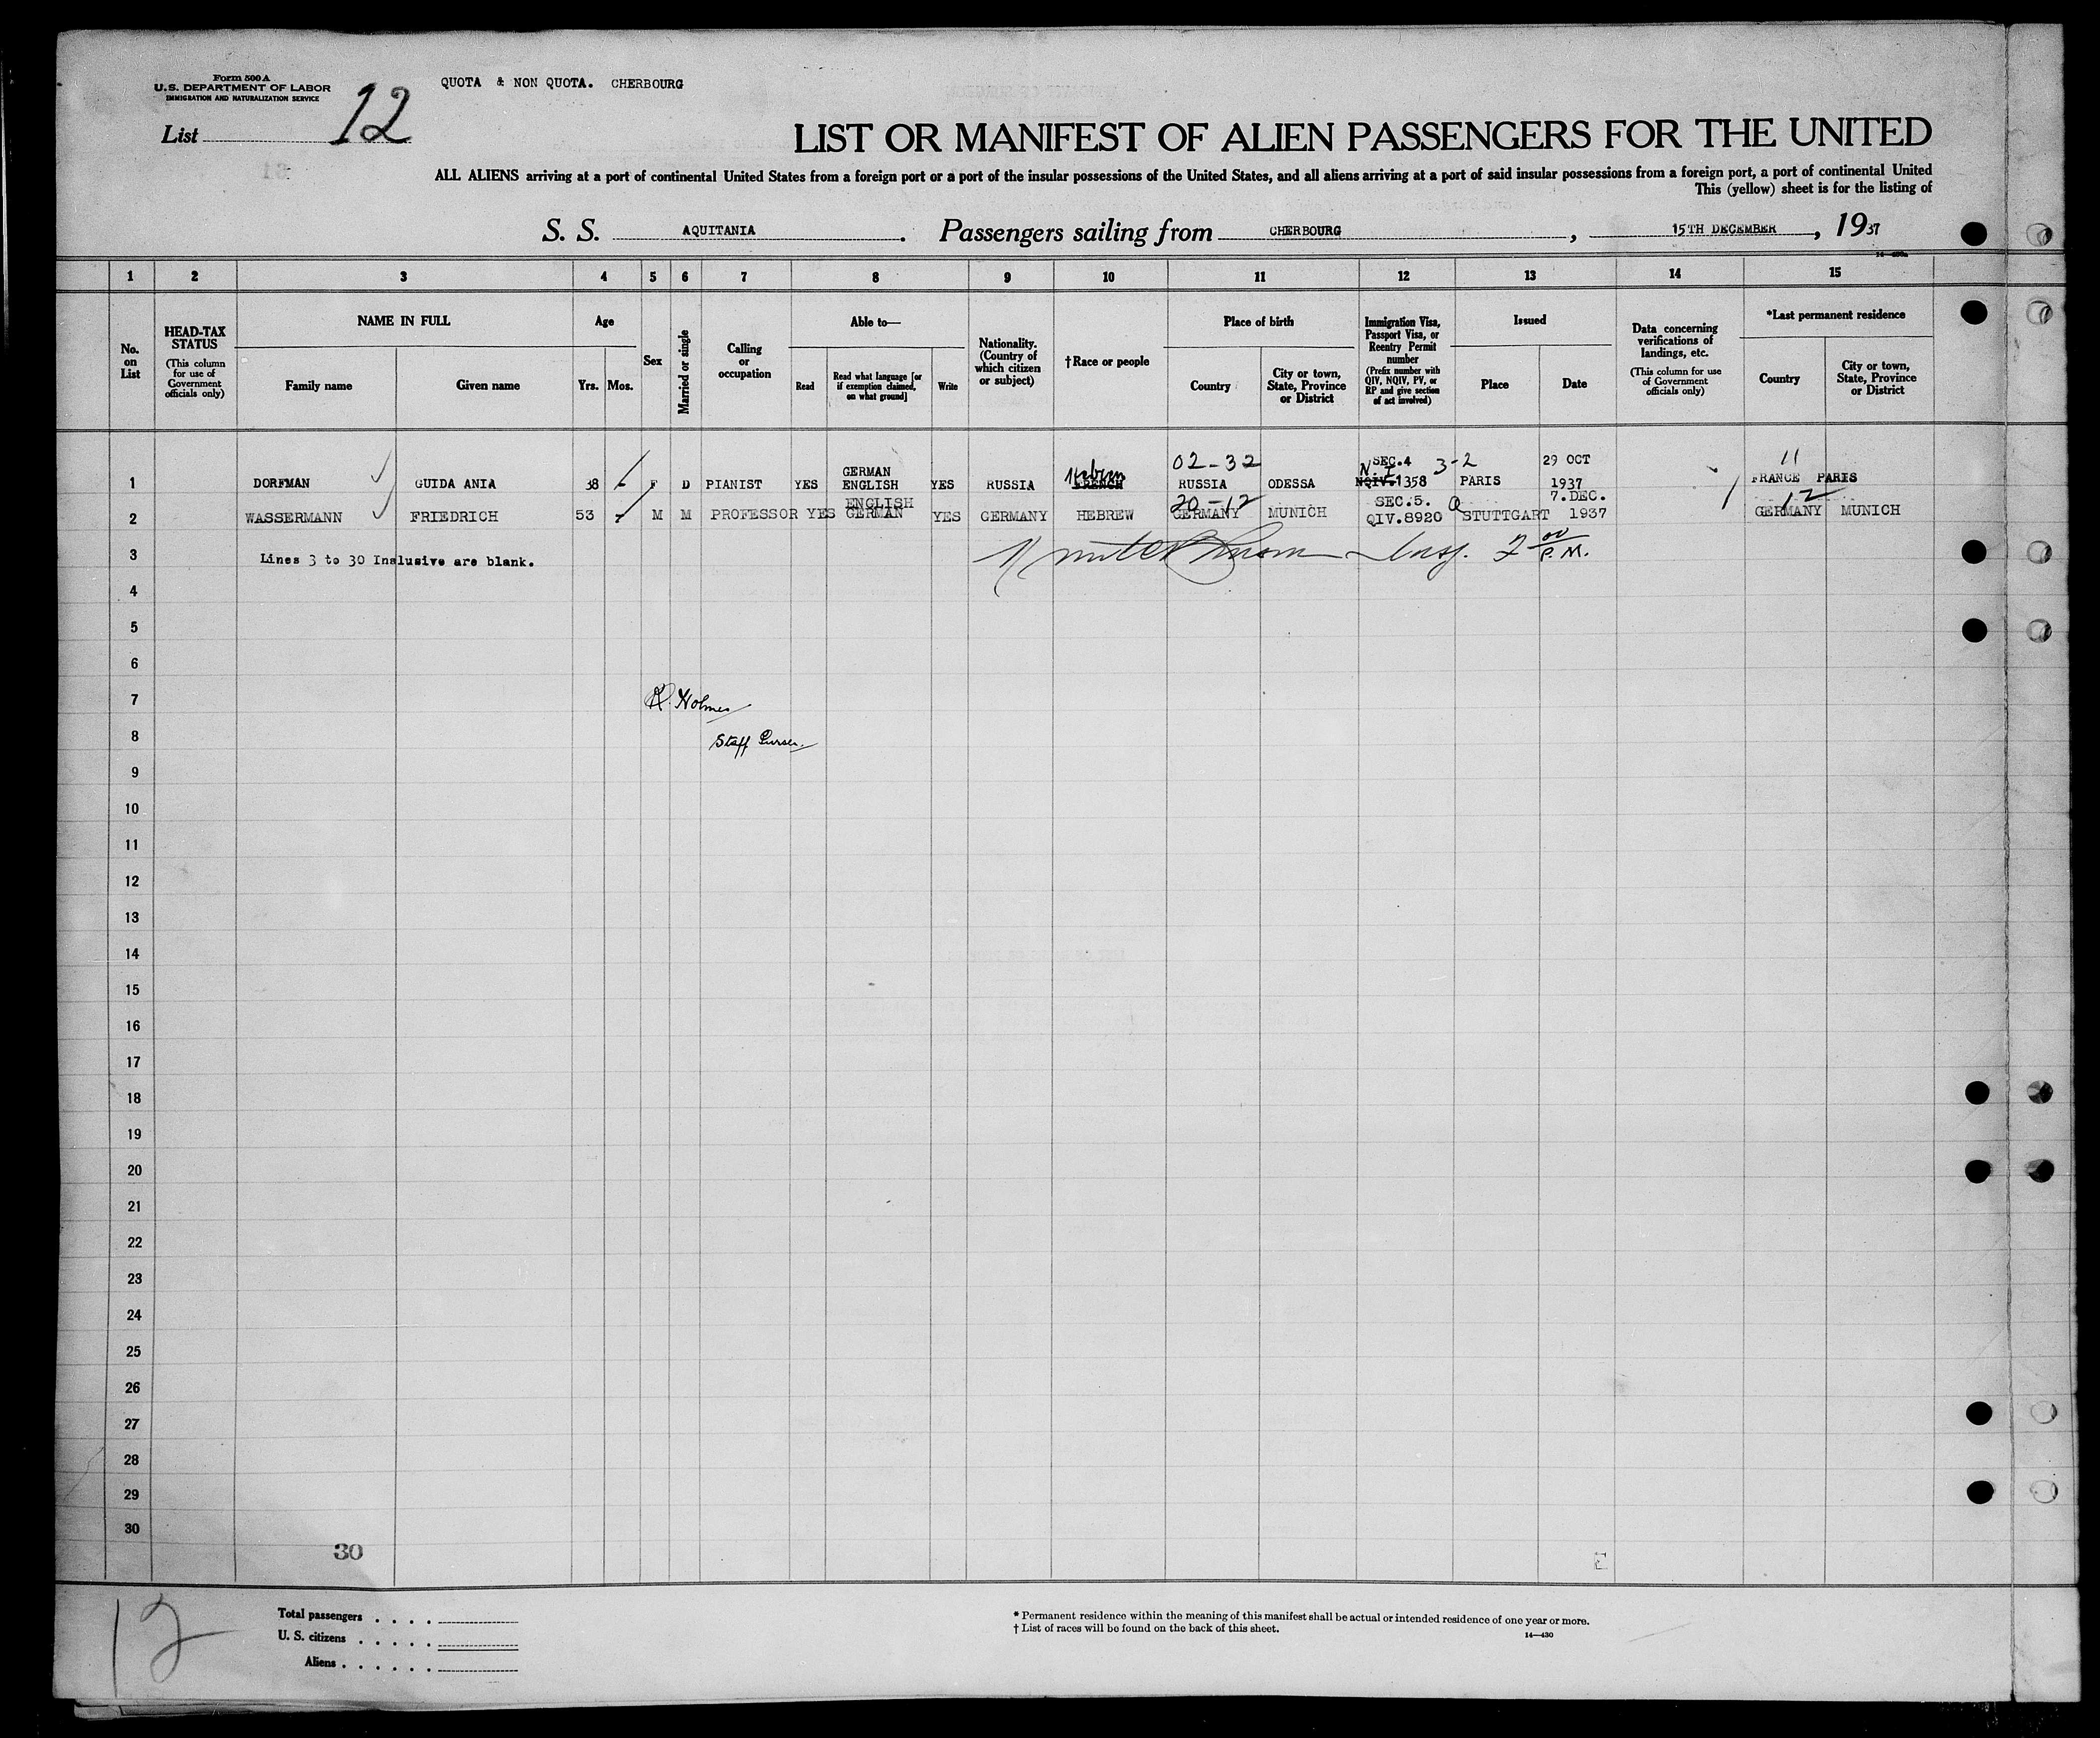 Form 500 A
U.S. DEPARTMENT OF LABOR
IMMIGRATION AND NATURALIZATION SERVICE
List 12
QUOTA & NON QUOTA. CHERBOURG
LIST OR MANIFEST OF ALIEN PASSENGERS FOR THE UNITED
ALL ALIENS arriving at a port of continental United States from a foreign port or a port of the insular possessions of the United States, and all aliens arriving at a port of said insular possessions from a foreign port, a port of continental United
This (yellow) sheet is for the listing of
S. S. AQUITANIA. Passengers sailing from CHERBOURG, 15TH DECEMBER, 1937
1 2 3 4 5 6 7 8 9 10 11 12 13 14 15
No. on List
HEAD-TAX STATUS
(This column for use of Government officials only)
NAME IN FULL
Family name
Given name
Age
Yrs.
Mos.
Sex
Married or single
Calling or occupation
Able to—
Read
Read what language [or if exemption claimed, on what ground]
Write
Nationality. (Country of which citizen or subject)
†Race or people
Place of birth
Country
City or town, State, Province or District
Immigration Visa, Passport Visa, or Reentry Permit number
(Prefix number with QIV, NQIV, PV, or RP and give section of act involved)
Issued
Place
Date
Data concerning verifications of landings, etc.
(This column for use of Government officials only)
*Last permanent residence
Country
City or town, State, Province or District
02-32 SEC.4 3-2 29 OCT 11
1 DORFMAN GUIDA ANIA 38 F D PIANIST YES GERMAN ENGLISH YES RUSSIA Hebrew FRENCH RUSSIA ODESSA NQIV.1358 PARIS 1937 FRANCE PARIS
20-12 SEC.5. Q 7.DEC. 12
2 WASSERMANN FRIEDRICH 53 M M PROFESSOR YES ENGLISH GERMAN YES GERMANY HEBREW GERMANY MUNICH QIV.8920 STUTTGART 1937 GERMANY MUNICH
3 Lines 3 to 30 Inslusive are blank. Insp. 2 00 P.M.
4
5
6
7 R. Holmes
8 Staff Purser.
9
10
11
12
13
14
15
16
17
18
19
20
21
22
23
24
25
26
27
28
29
30
30
12
Total passengers
U. S. citizens
Aliens
* Permanent residence within the meaning of this manifest shall be actual or intended residence of one year or more.
† List of races will be found on the back of this sheet.
14—430